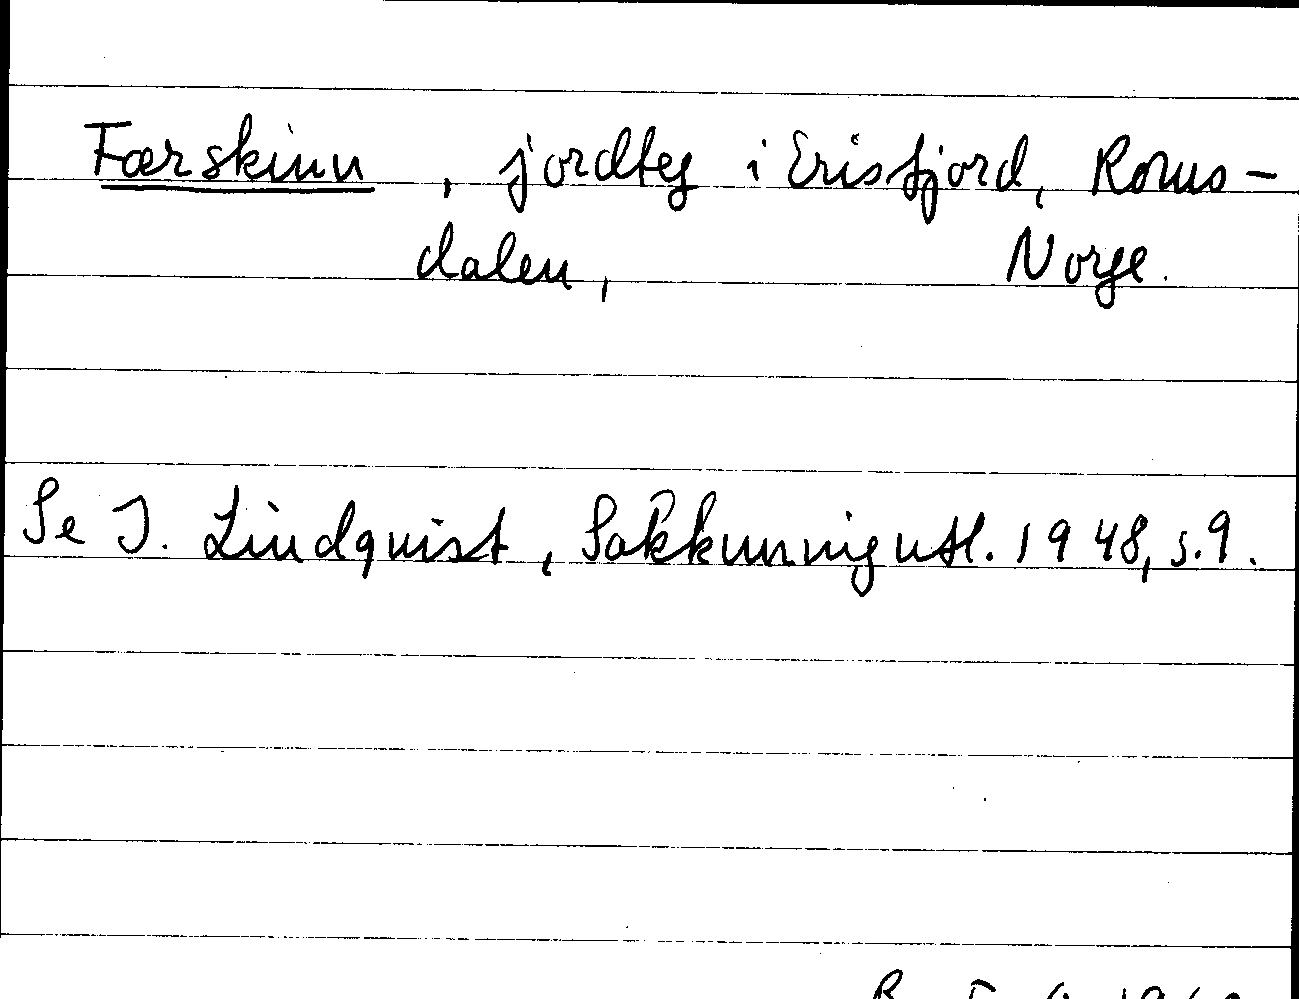 Færskinn, jordteg i Erisfjord, Roms-
dalen, Norge.
Se I. Lindquist, Sakkunnigutl. 1948, s.9.